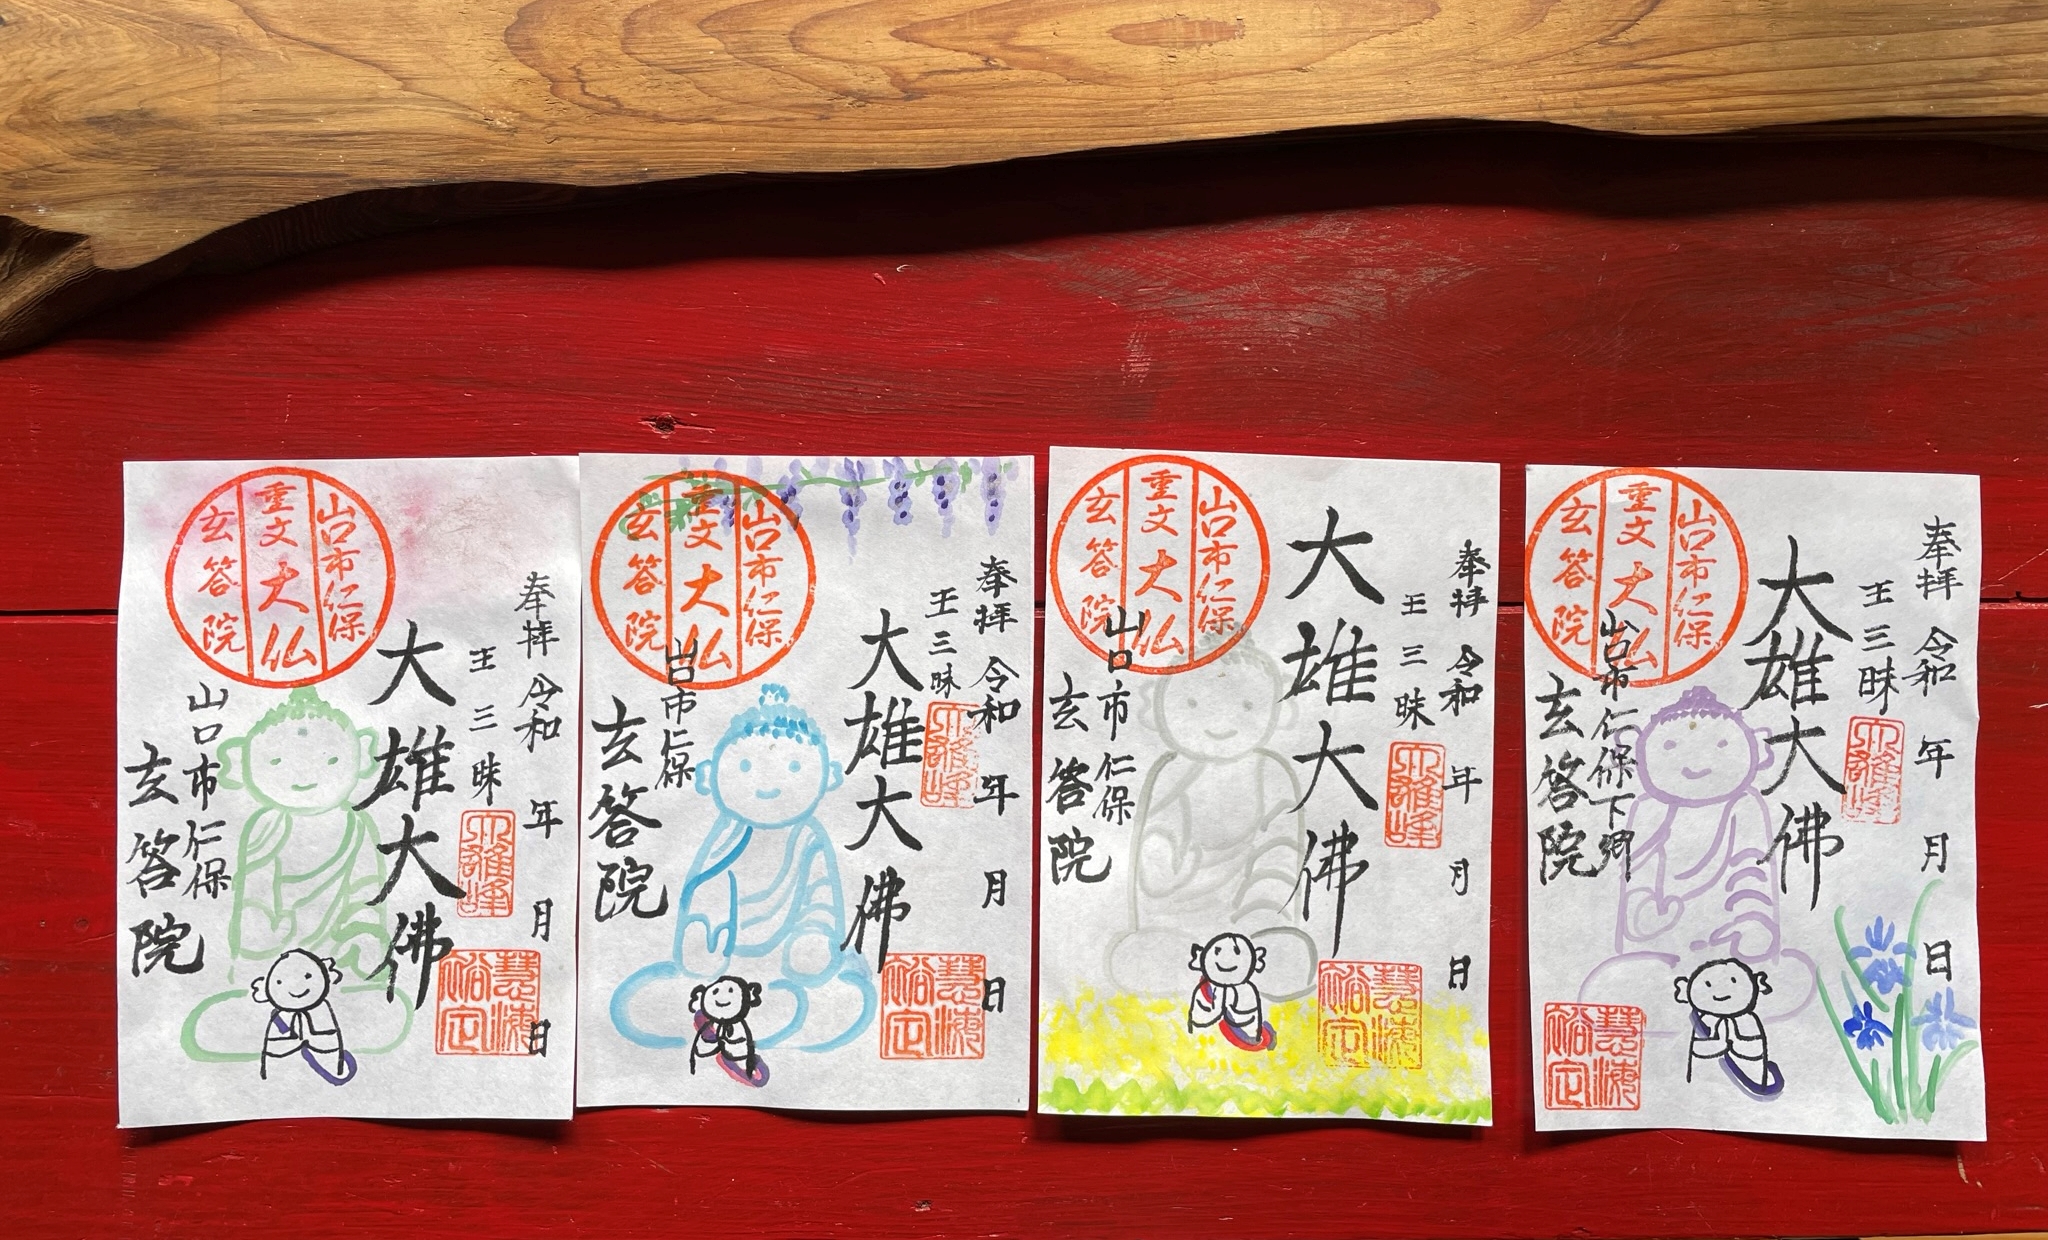 奉拝 令和 年 月 日
王三昧
大雄大佛
山口市仁保
玄答院
山口市仁保
重文大仏
玄答院
大雄峰
奉拝 令和 年 月 日
王三昧
大雄大佛
山口市仁保
玄答院
山口市仁保
重文大仏
玄答院
大雄峰
奉拝 令和 年 月 日
王三昧
大雄大佛
山口市仁保
玄答院
山口市仁保
重文大仏
玄答院
大雄峰
奉拝 令和 年 月 日
王三昧
大雄大佛
山口市仁保下郷
玄答院
山口市仁保
重文大仏
玄答院
大雄峰